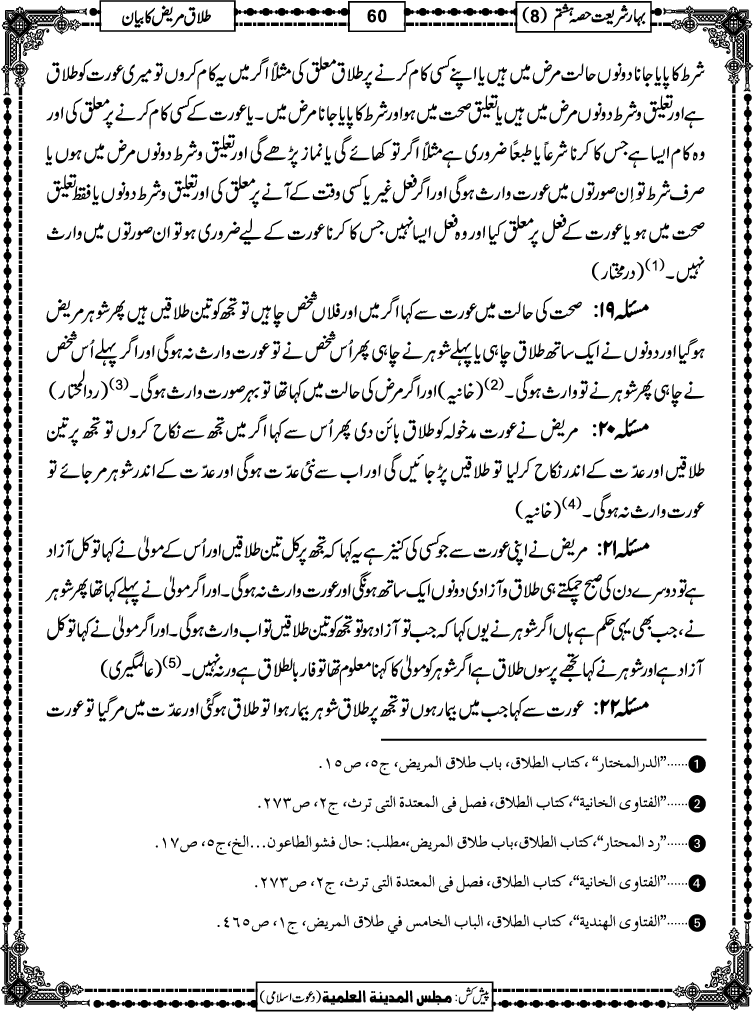 بہار شریعت حصہ ہشتم (8)
60
طلاق مریض کا بیان
شرط کا پایا جانا دونوں حالت مرض میں ہیں یا اپنے کسی کام کرنے پر طلاق معلق کی مثلاً اگر میں یہ کام کروں تو میری عورت کو طلاق
ہے اور تعلیق و شرط دونوں مرض میں ہیں یا تعلیق صحت میں ہو اور شرط کا پایا جانا مرض میں۔ یا عورت کے کسی کام کرنے پر معلق کی اور
وہ کام ایسا ہے جس کا کرنا شرعاً یا طبعاً ضروری ہے مثلاً اگر تو کھائے گی یا نماز پڑھے گی اور تعلیق و شرط دونوں مرض میں ہوں یا
صرف شرط تو اِن صورتوں میں عورت وارث ہوگی اور اگر فعل غیر یا کسی وقت کے آنے پر معلق کی اور تعلیق و شرط دونوں یا فقط تعلیق
صحت میں ہو یا عورت کے فعل پر معلق کیا اور وہ فعل ایسا نہیں جس کا کرنا عورت کے لیے ضروری ہو تو ان صورتوں میں وارث
نہیں۔(1) (درمختار)
مسئلہ ۱۹: صحت کی حالت میں عورت سے کہا اگر میں اور فلاں شخص چاہیں تو تجھ کو تین طلاقیں ہیں پھر شوہر مریض
ہوگیا اور دونوں نے ایک ساتھ طلاق چاہی یا پہلے شوہر نے چاہی پھر اُس شخص نے تو عورت وارث نہ ہوگی اور اگر پہلے اُس شخص
نے چاہی پھر شوہر نے تو وارث ہوگی۔(2) (خانیہ) اور اگر مرض کی حالت میں کہا تھا تو بہر صورت وارث ہوگی۔(3) (ردالمحتار)
مسئلہ ۲۰: مریض نے عورت مدخولہ کو طلاق بائن دی پھر اُس سے کہا اگر میں تجھ سے نکاح کروں تو تجھ پر تین
طلاقیں اور عدّت کے اندر نکاح کرلیا تو طلاقیں پڑ جائیں گی اور اب سے نئی عدّت ہوگی اور عدّت کے اندر شوہر مر جائے تو
عورت وارث نہ ہوگی۔(4) (خانیہ)
مسئلہ ۲۱: مریض نے اپنی عورت سے جو کسی کی کنیز ہے یہ کہا کہ تجھ پر کل تین طلاقیں اور اُس کے مولیٰ نے کہا تو کل آزاد
ہے تو دوسرے دن کی صبح چمکتے ہی طلاق و آزادی دونوں ایک ساتھ ہونگی اور عورت وارث نہ ہوگی۔ اور اگر مولیٰ نے پہلے کہا تھا پھر شوہر
نے، جب بھی یہی حکم ہے ہاں اگر شوہر نے یوں کہا کہ جب تو آزاد ہو تو تجھ کو تین طلاقیں تو اب وارث ہوگی۔ اور اگر مولیٰ نے کہا تو کل
آزاد ہے اور شوہر نے کہا تجھے پرسوں طلاق ہے اگر شوہر کو مولیٰ کا کہنا معلوم تھا تو فار بالطلاق ہے ورنہ نہیں۔(5) (عالمگیری)
مسئلہ ۲۲: عورت سے کہا جب میں بیمار ہوں تو تجھ پر طلاق شوہر بیمار ہوا تو طلاق ہوگئی اور عدّت میں مرگیا تو عورت
1 ......”الدرالمختار“، کتاب الطلاق، باب طلاق المریض، ج٥، ص١٥.
2 ......”الفتاوی الخانیة“، کتاب الطلاق، فصل فی المعتدة التی ترث، ج٢، ص٢٧٣.
3 ......”رد المحتار“، کتاب الطلاق، باب طلاق المریض، مطلب: حال فشو الطاعون...الخ، ج٥، ص١٧.
4 ......”الفتاوی الخانیة“، کتاب الطلاق، فصل فی المعتدة التی ترث، ج٢، ص٢٧٣.
5 ......”الفتاوی الهندیة“، کتاب الطلاق، الباب الخامس في طلاق المریض، ج١، ص٤٦٥.
پیش کش: مجلس المدینة العلمیة (دعوت اسلامی)